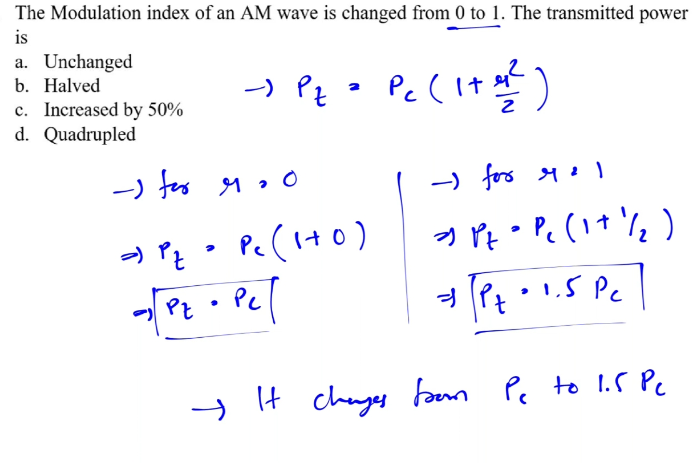 The Modulation index of an AM wave is changed from 0 to 1. The transmitted power
is
a. Unchanged
b. Halved
c. Increased by 50%
d. Quadrupled
→ Pt = Pc (1 + μ²/2)
→ for μ = 0
⇒ Pt = Pc (1 + 0)
⇒ Pt = Pc
→ for μ = 1
⇒ Pt = Pc (1 + 1/2)
⇒ Pt = 1.5 Pc
→ It changes from Pc to 1.5 Pc